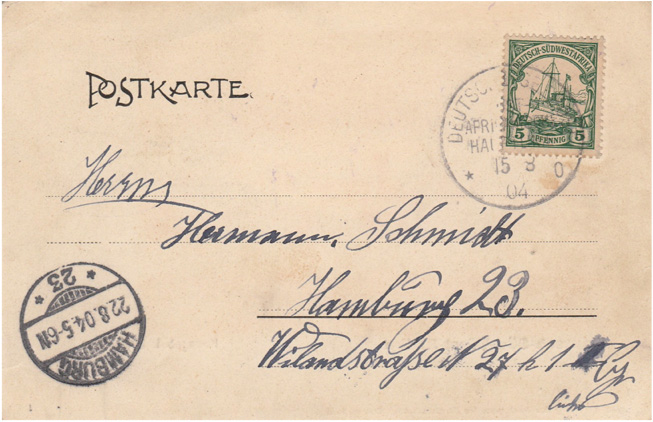 POSTKARTE.
DEUTSCH-SÜDWESTAFRIKA
5 PFENNIG 5
DEUTSCH
AFRI
15 8 0
04
Herrn
Hermann Schmidt
Hamburg 23.
Wilandstraße N 27 h 1
* 23 *
22.8.04.5-6N
HAMBURG